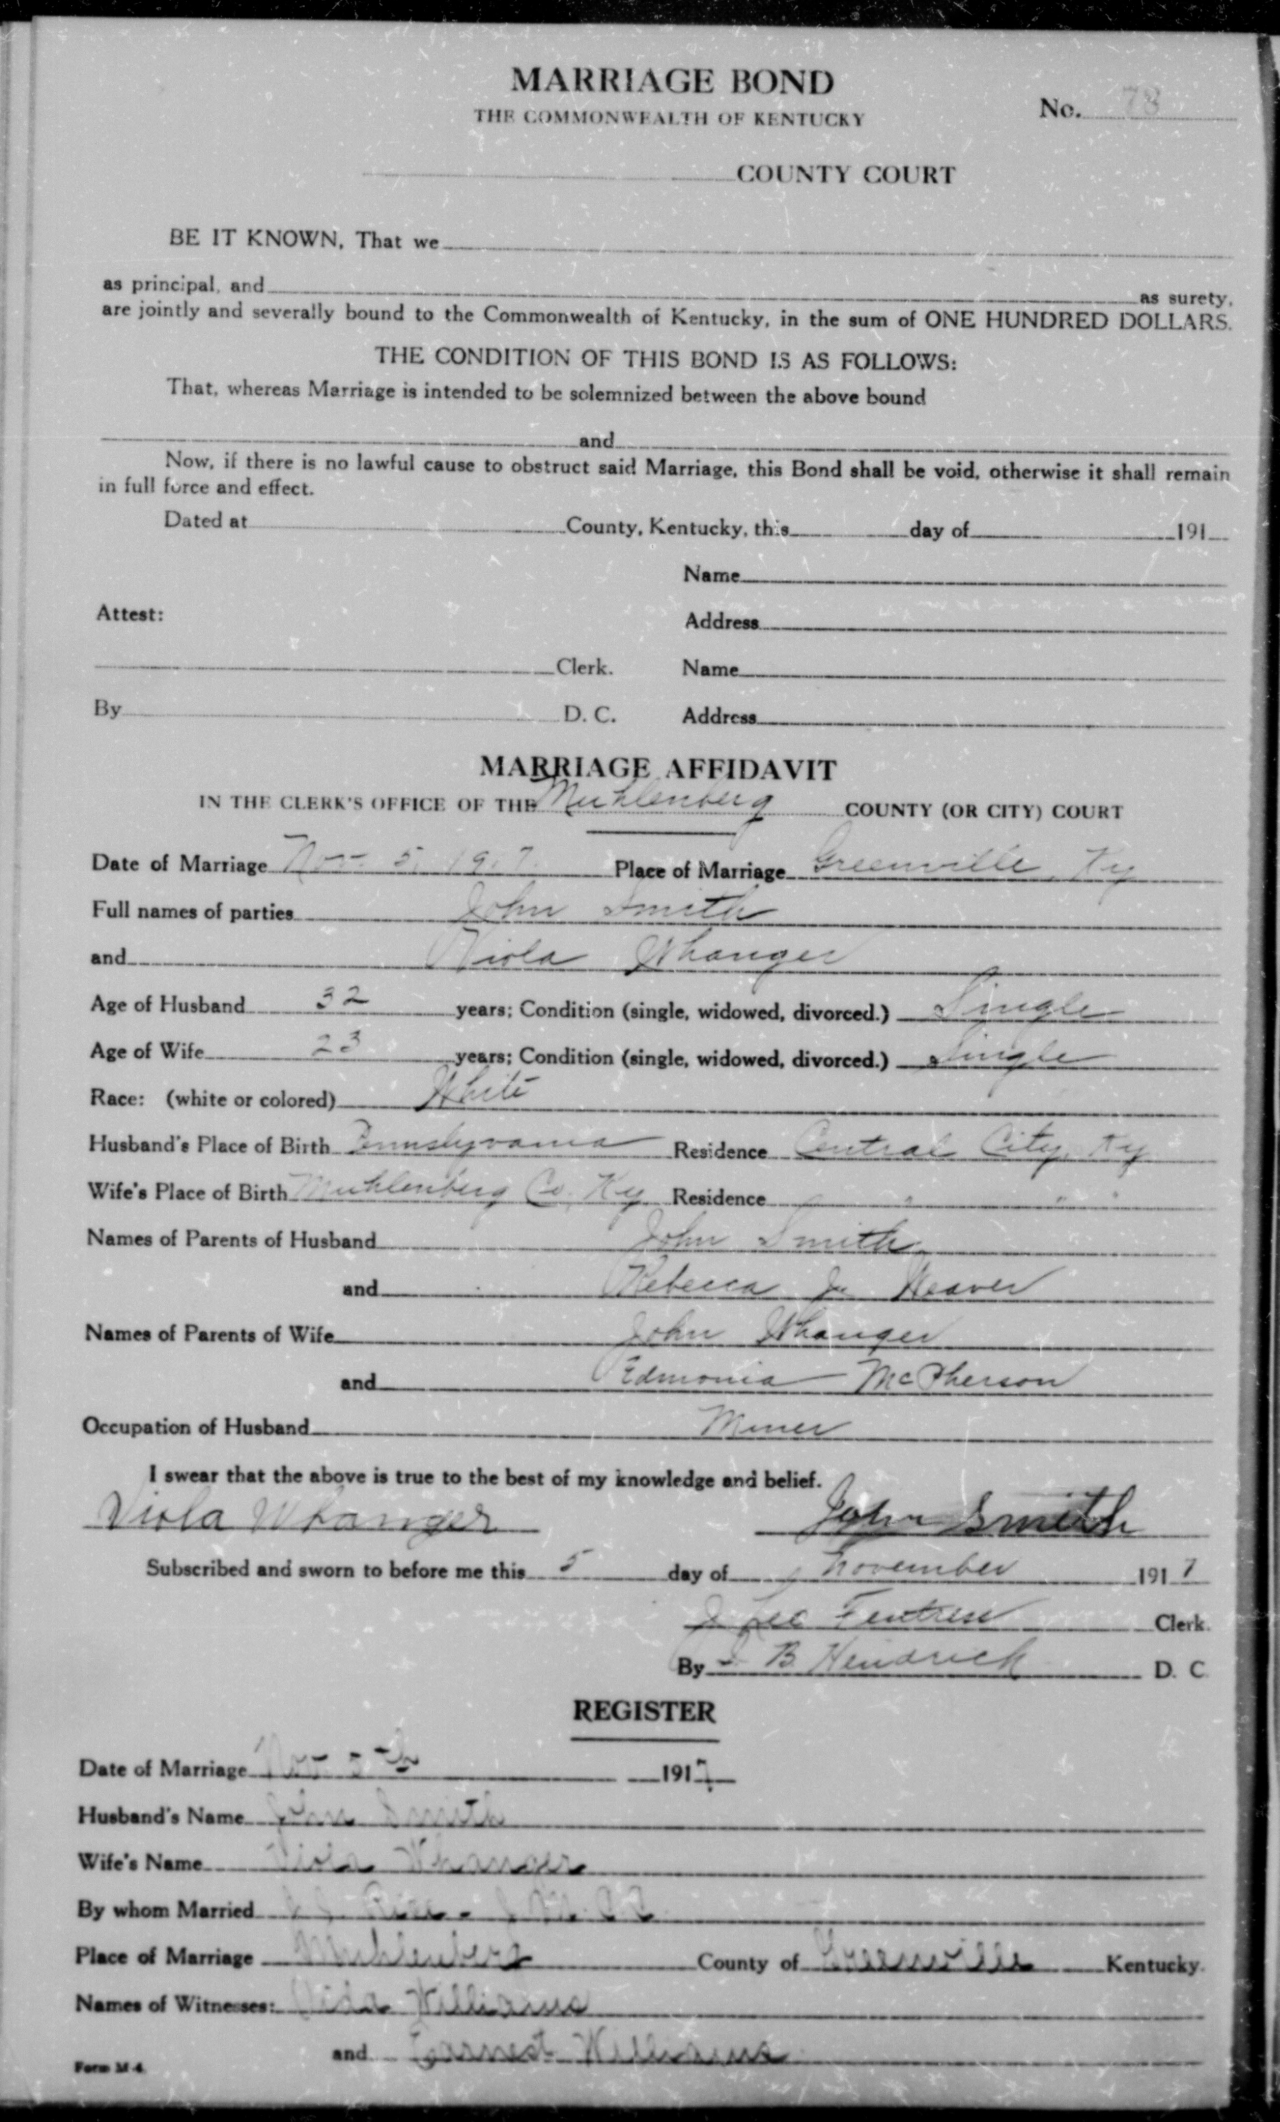 MARRIAGE BOND
THE COMMONWEALTH OF KENTUCKY
No. 78
COUNTY COURT
BE IT KNOWN, That we
as principal, and as surety,
are jointly and severally bound to the Commonwealth of Kentucky, in the sum of ONE HUNDRED DOLLARS.
THE CONDITION OF THIS BOND IS AS FOLLOWS:
That, whereas Marriage is intended to be solemnized between the above bound
and
Now, if there is no lawful cause to obstruct said Marriage, this Bond shall be void, otherwise it shall remain
in full force and effect.
Dated at County, Kentucky, this day of 191
Name
Attest:
Address
Clerk. Name
By D. C. Address
MARRIAGE AFFIDAVIT
IN THE CLERK'S OFFICE OF THE Muhlenberg COUNTY (OR CITY) COURT
Date of Marriage Nov. 5, 1917 Place of Marriage Greenville, Ky
Full names of parties John Smith
and Viola Whanger
Age of Husband 32 years; Condition (single, widowed, divorced.) Single
Age of Wife 23 years; Condition (single, widowed, divorced.) Single
Race: (white or colored) White
Husband's Place of Birth Pennslyvania Residence Central City, Ky
Wife's Place of Birth Muhlenberg Co, Ky Residence " " "
Names of Parents of Husband John Smith
and Rebecca J. Weaver
Names of Parents of Wife John Whanger
and Edmonia McPherson
Occupation of Husband Miner
I swear that the above is true to the best of my knowledge and belief.
Viola Whanger John Smith
Subscribed and sworn to before me this 5 day of November 1917
J Lee Fentress Clerk.
By J. B. Hendrick D. C
REGISTER
Date of Marriage Nov 5th 1917
Husband's Name John Smith
Wife's Name Viola Whanger
By whom Married Rice
Place of Marriage Muhlenberg County of Greenville Kentucky.
Names of Witnesses: Vida Williams
and Earnest Williams
Form M-4